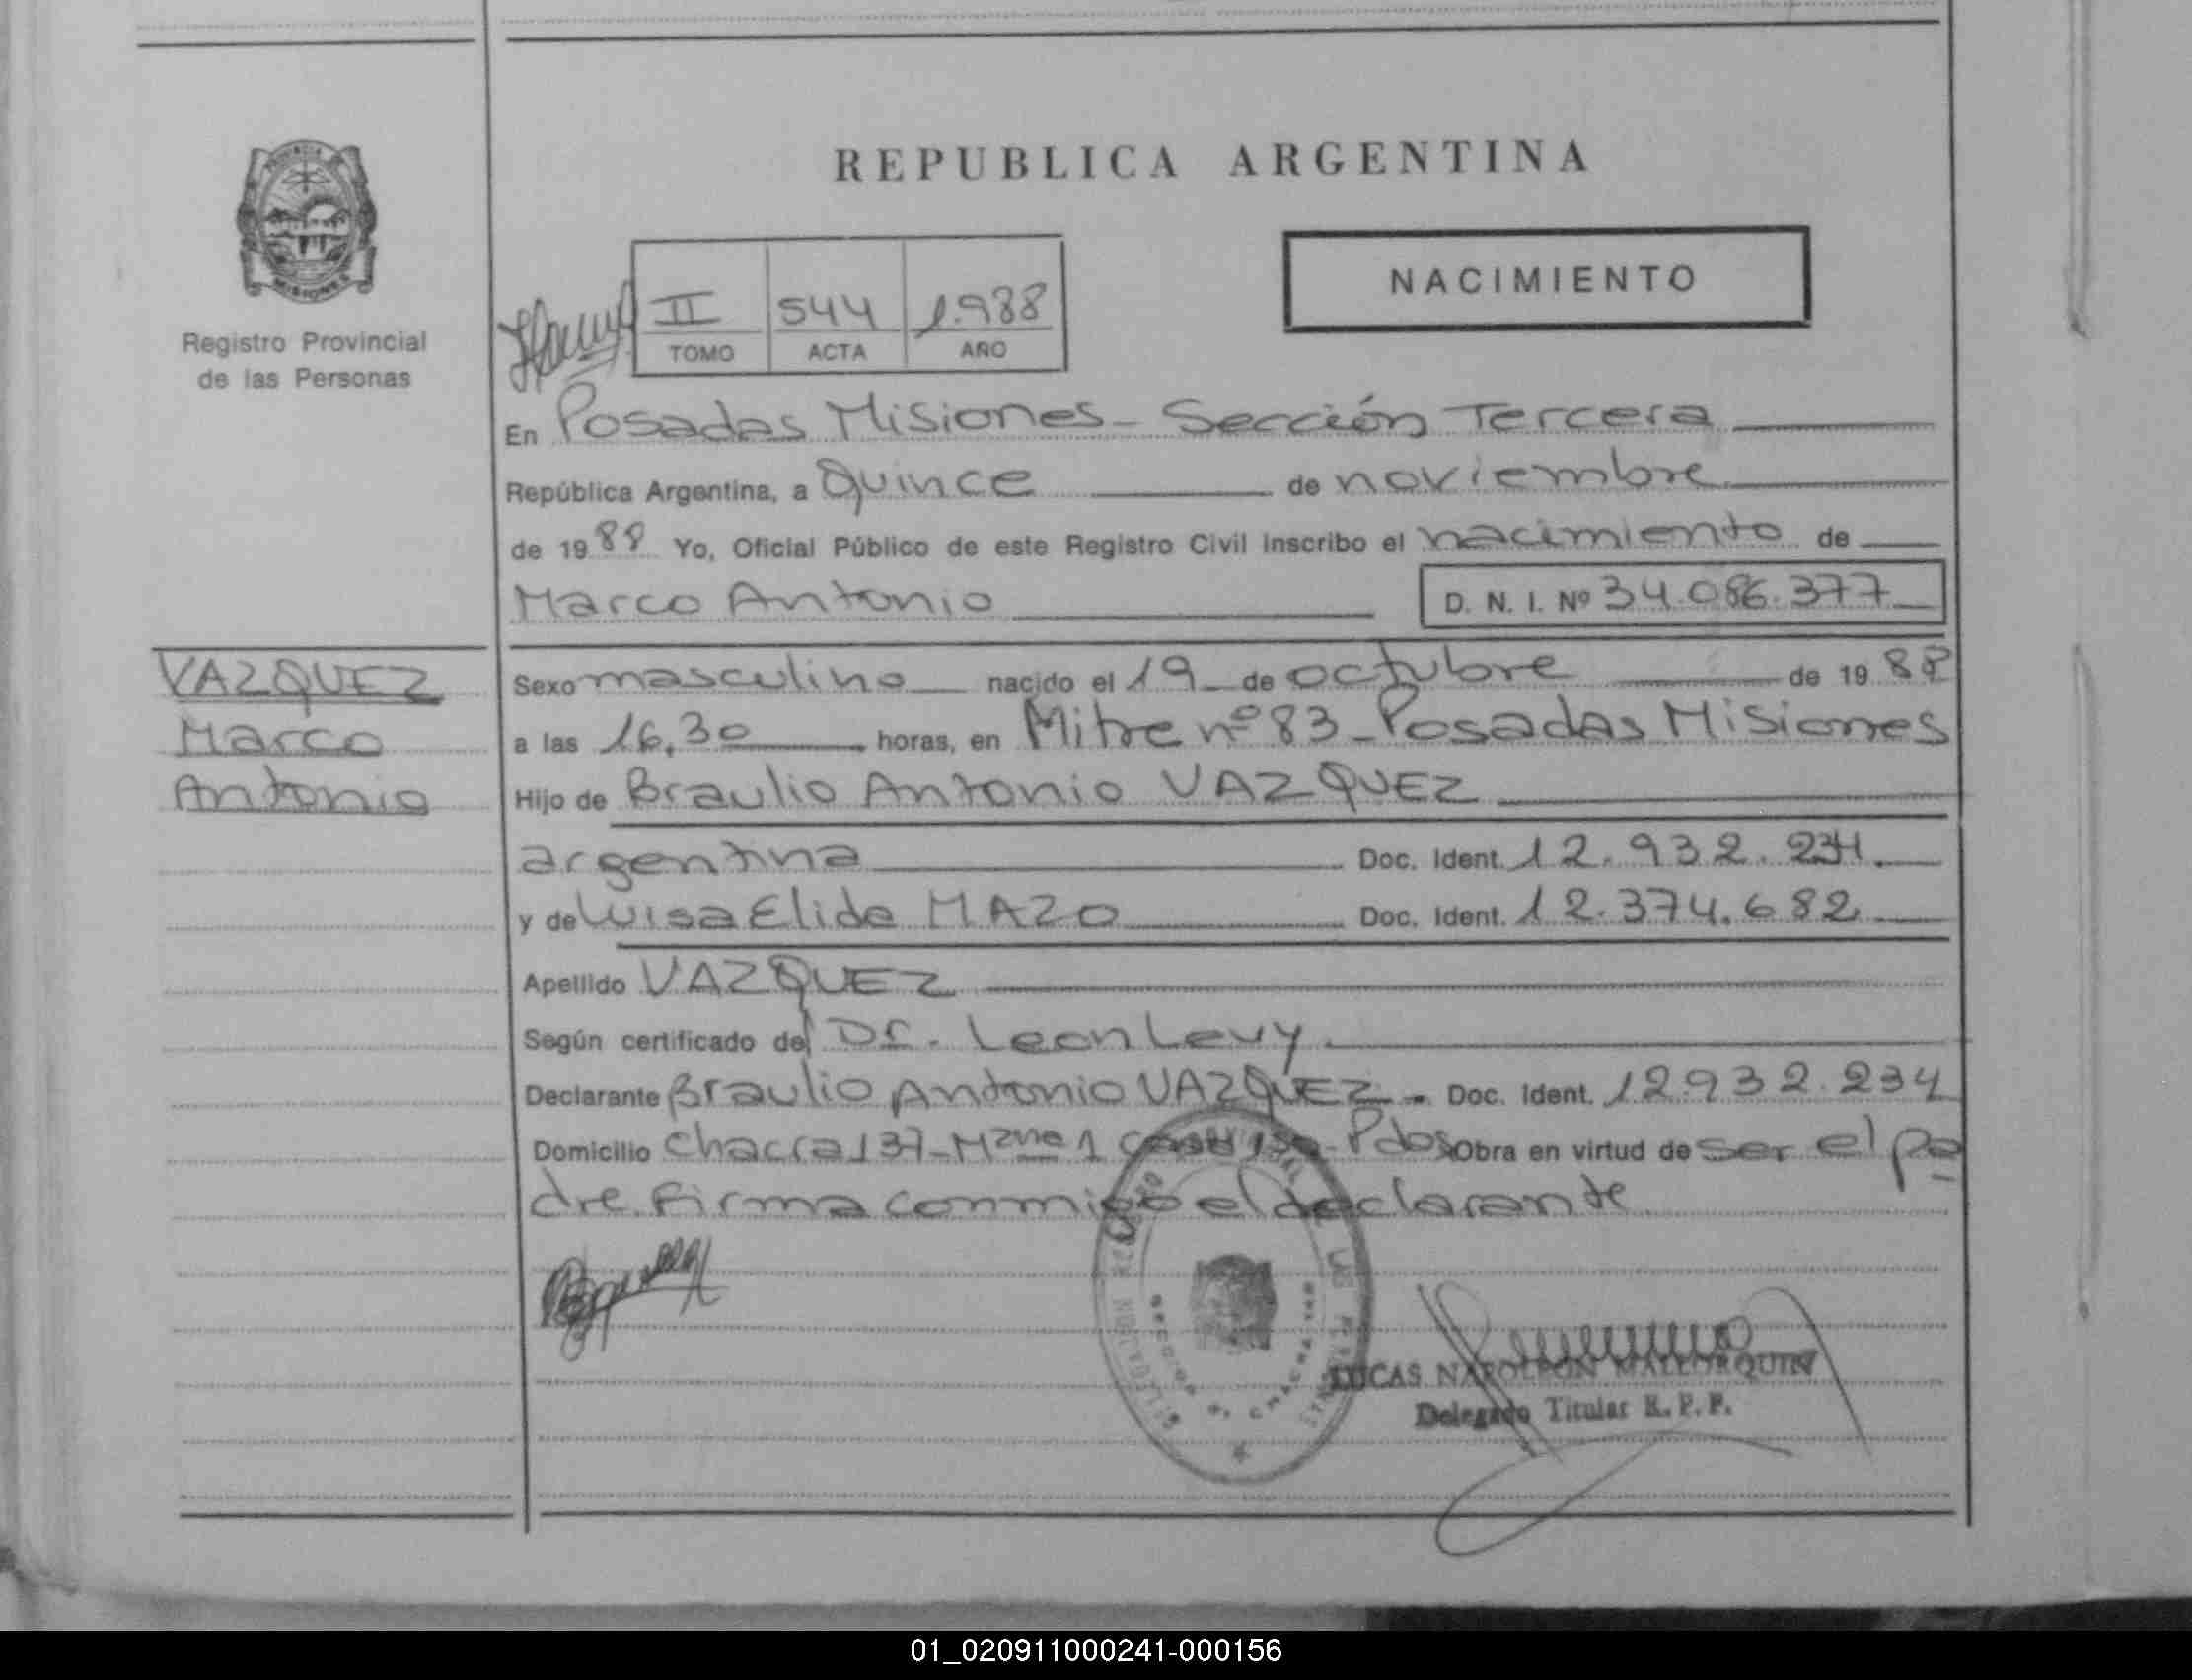 REPUBLICA ARGENTINA
NACIMIENTO
II 544 1.988
TOMO ACTA AÑO
Registro Provincial
de las Personas
En Posadas Misiones - Sección Tercera
República Argentina, a Quince de noviembre
de 1988 Yo, Oficial Público de este Registro Civil inscribo el nacimiento de
Marco Antonio D. N. I. Nº 34.086.377
VAZQUEZ
Marco
Antonio
Sexo masculino nacido el 19 de octubre de 1988
a las 16,30 horas, en Mitre nº 83 - Posadas Misiones
Hijo de Braulio Antonio VAZQUEZ
argentina Doc. Ident. 12.932.234.
y de Luisa Elida MAZO Doc. Ident. 12.374.682
Apellido VAZQUEZ
Según certificado del Dr. Leon Levy
Declarante Braulio Antonio VAZQUEZ - Doc. Ident. 12.932.234
Domicilio Chacra 137 - Mzna 1 Pdas Obra en virtud de ser el pa
dre. Firma conmigo el declarante
LUCAS NAPOLEON MALLORQUIN
Delegado Titular R. P. P.
01_020911000241-000156